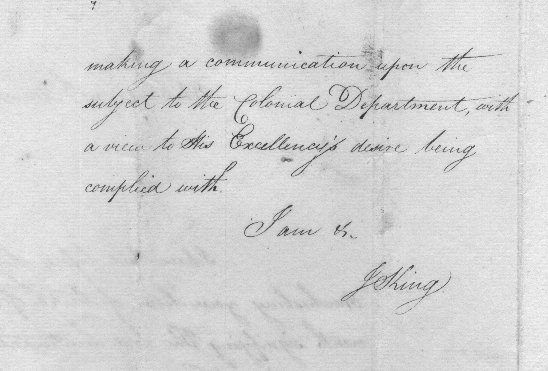 making a communication upon the
subject to the Colonial Department, with
a view to His Excellency's desire being
complied with.
I am &c.
J King